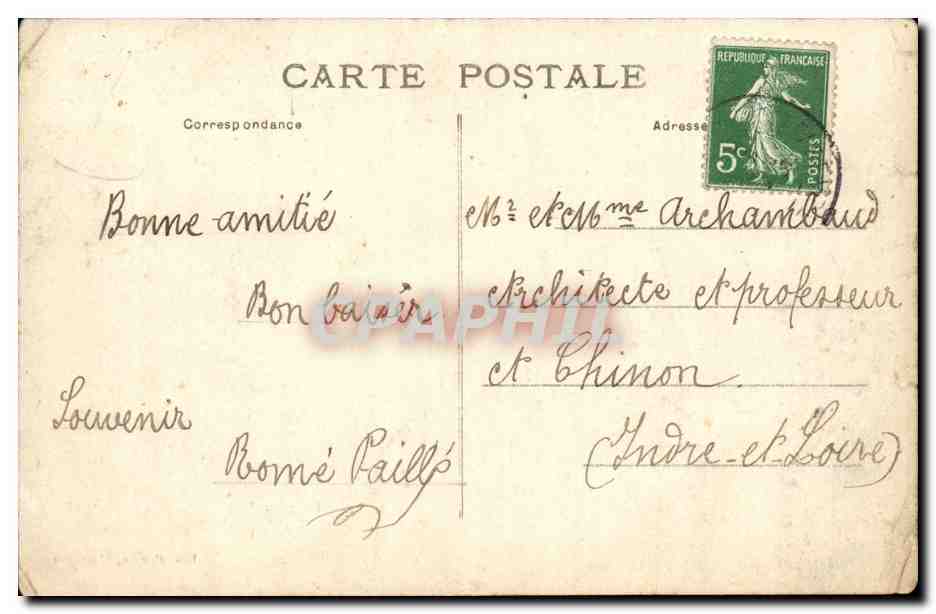 CARTE POSTALE
Correspondance
Bonne amitié
Bon baiser
Souvenir
Romé Paillé
Adresse
REPUBLIQUE FRANÇAISE
5c
POSTES
Mr et Mme Archambaud
Architecte et professeur
et Chinon
(Indre-et-Loire)
CPAPHIL